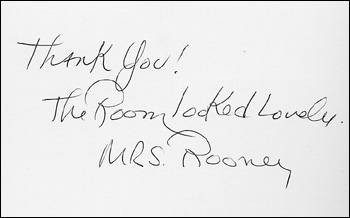 Thank You!
The Room looked Lovely.
MRS. Rooney